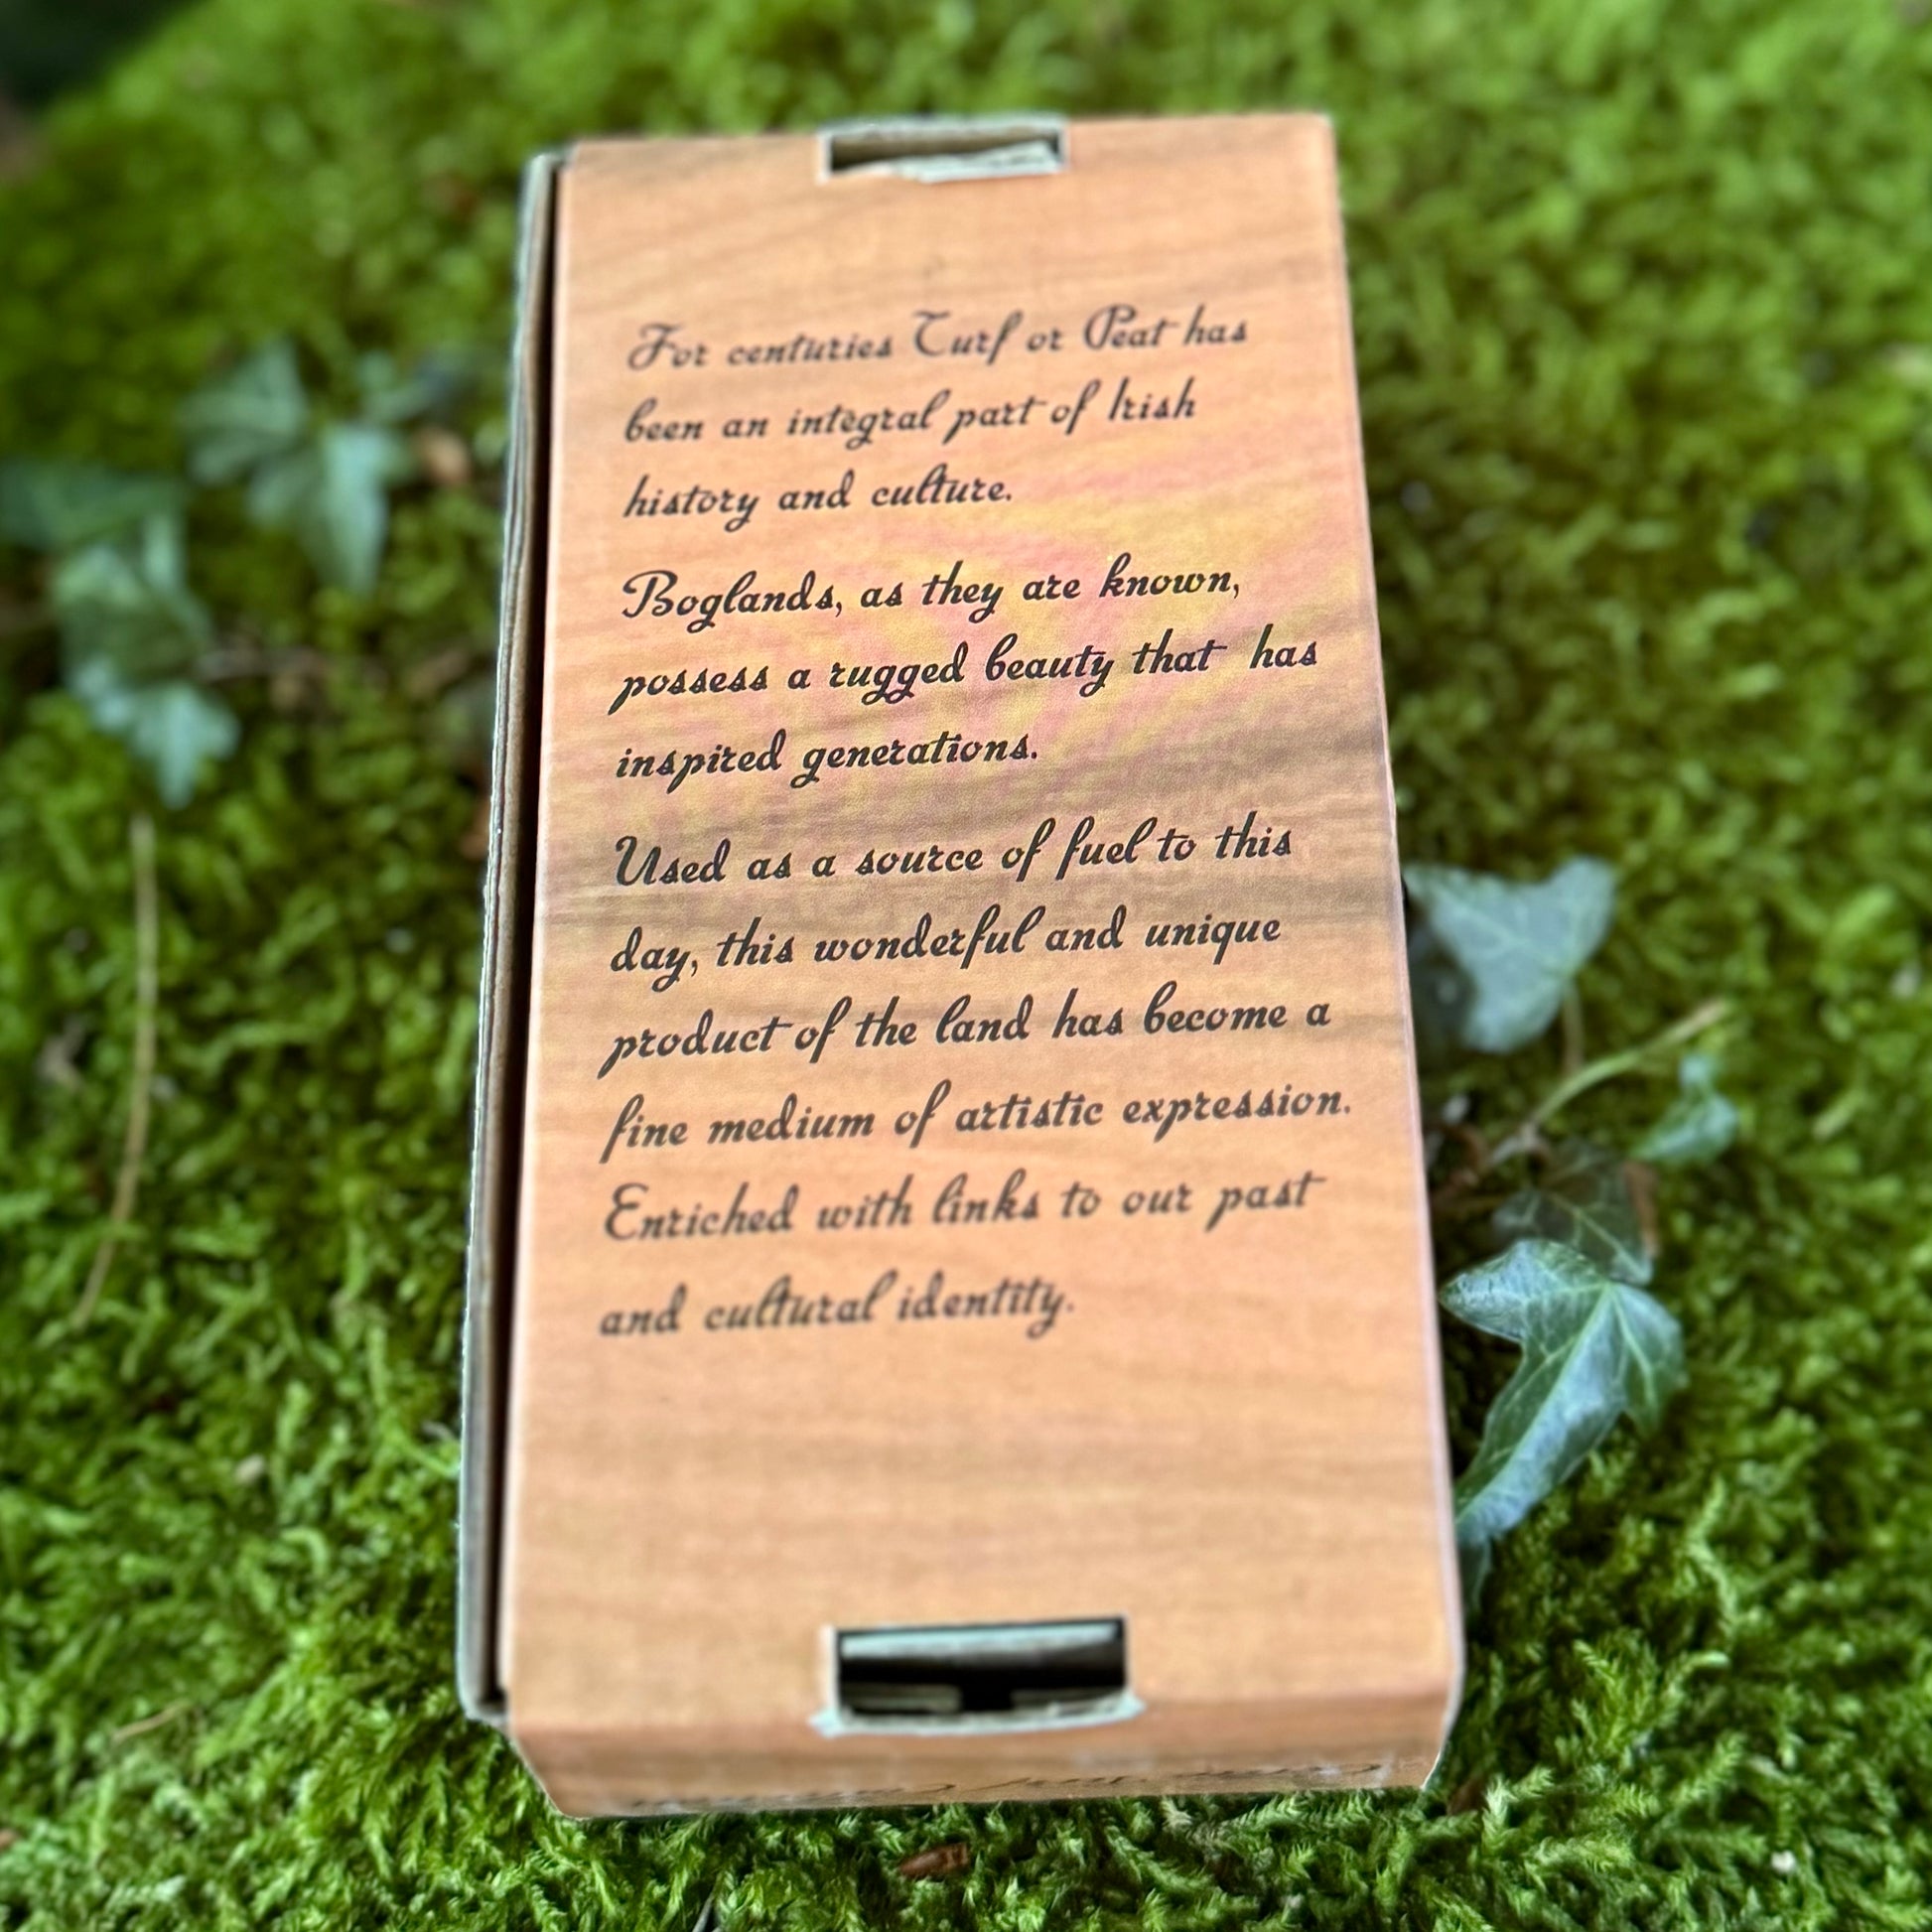 For centuries Turf or Peat has
been an integral part of Irish
history and culture.
Boglands, as they are known,
possess a rugged beauty that has
inspired generations.
Used as a source of fuel to this
day, this wonderful and unique
product of the land has become a
fine medium of artistic expression.
Enriched with links to our past
and cultural identity.